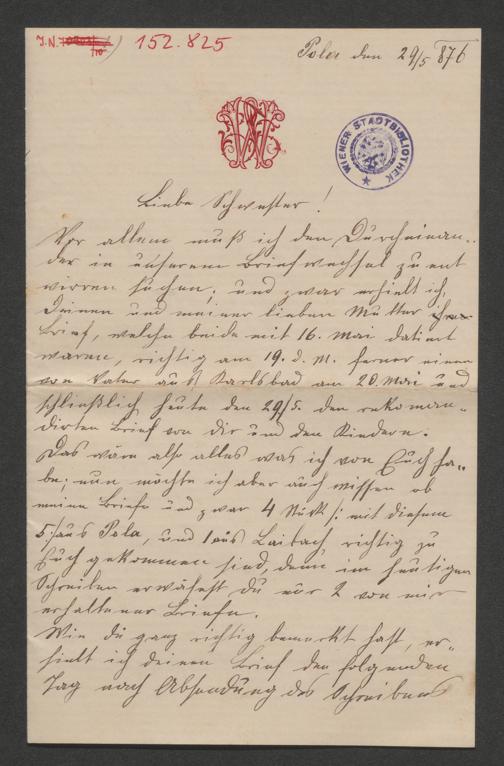 J.N. 152.825
Pola den 29/5 876
WIENER STADTBIBLIOTHEK
Liebe Schwester!
Vor allem muß ich den Durcheinan-
der in unserem Briefwechsel zu ent
wirren suchen; und zwar erhielt ich,
Deinen und meiner lieben Mutter
Brief, welche beide mit 16. Mai datiert
waren, richtig am 19. d. M. ferner einen
von Vater aus Karlsbad am 20. Mai und
schließlich heute den 29/5. den rekoman-
dirten Brief von dir und den Kindern.
Das wäre also alles was ich von Euch ha-
be; nun möchte ich aber auch wissen ob
meine Briefe und zwar 4 Stück /: mit diesem
5:/ aus Pola, und 1 aus Laibach richtig zu
Euch gekommen sind, denn im heutigen
Schreiben erwähnst Du nur 2 von mir
erhaltener Briefe.
Wie du ganz richtig bemerkt hast, er-
hielt ich deinen Brief den folgenden
Tag nach Absendung des Schreibens